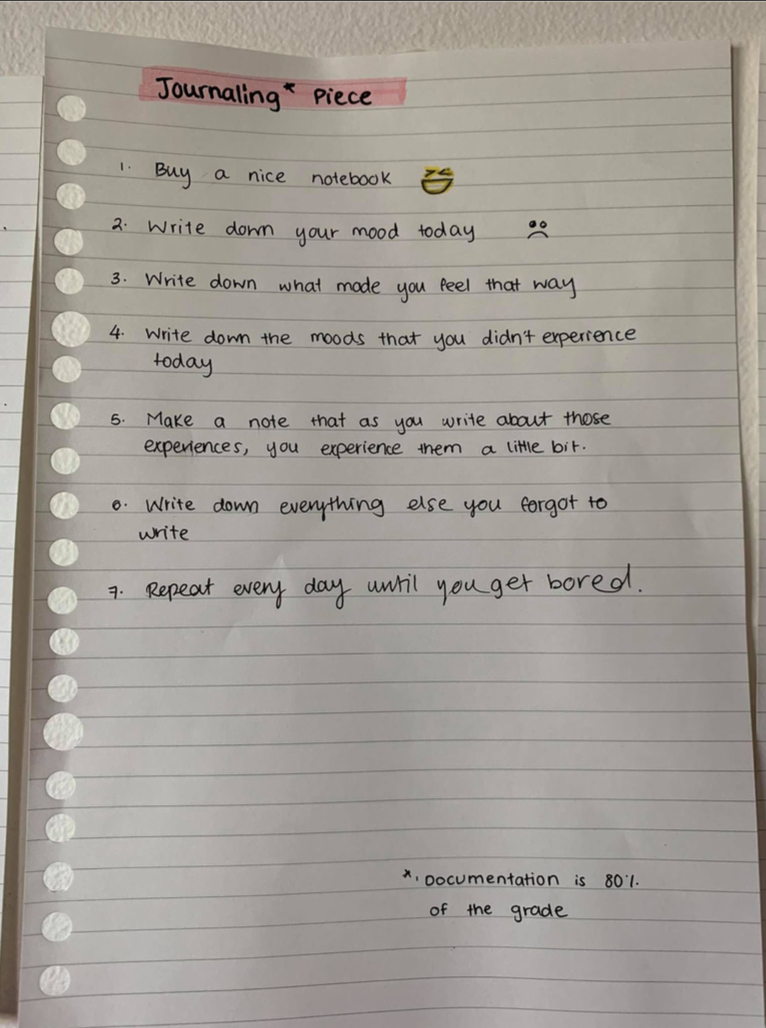 Journaling* Piece
1. Buy a nice notebook
2. Write down your mood today
3. Write down what made you feel that way
4. Write down the moods that you didn't experience
today
5. Make a note that as you write about those
experiences, you experience them a little bit.
6. Write down everything else you forgot to
write
7. Repeat every day until you get bored.
*. Documentation is 80%
of the grade